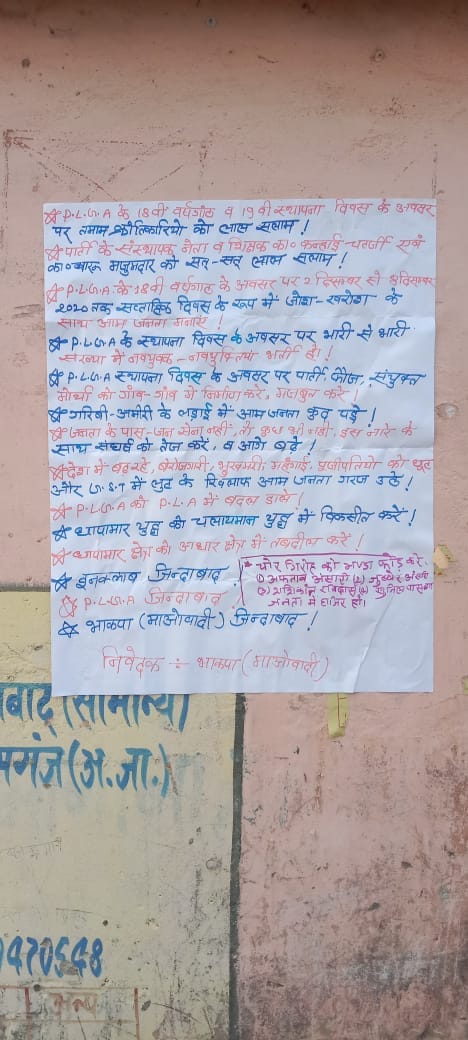 ☆ P.L.G.A के 18वीं वर्षगांठ व 19वी स्थापना दिवस के अवसर
पर तमाम क्रांतिकारियो को लाल सलाम !
☆ पार्टी के संस्थापक नेता व शिक्षक का० कन्हाई चटर्जी एवं
का० चारू मजुमदार को सत्-सत् लाल सलाम !
☆ P.L.G.A के 18वीं वर्षगांठ के अवसर पर 2 दिसम्बर से 8 दिसम्बर
2020 तक सप्ताहिक दिवस के रूप में जोश-खरोश के
साथ आम जनता मनाएं !
☆ P.L.G.A के स्थापना दिवस के अवसर पर भारी से भारी
संख्या में नवयुवक-नवयुवतियाँ भर्ती हों !
☆ P.L.G.A स्थापना दिवस के अवसर पर पार्टी, फौज, संयुक्त
मोर्चा को गांव-गांव में निर्माण करे, मजबुत करे !
☆ गरिबी-अमीरी के लड़ाई में आम जनता कुद पड़े !
☆ जनता के पास-जन सेना नहीं, तो कुछ भी नही, इस नारे के
साथ संघर्ष को तेज करें, व आगे बढ़े !
☆ देश में बढ़ रहे, बेरोजगारी, भुखमरी, महंगाई, पुंजीपतियो को छुट
और G.S.T में लुट के खिलाफ आम जनता गरज उठे !
☆ P.L.G.A को P.L.A में बदल डालो !
☆ छापामार युद्ध को चलायमान युद्ध में विकसीत करें !
☆ छापामार क्षेत्र को आधार क्षेत्र में तबदील करें !
☆ इनक्लाब जिन्दाबाद !
☆ P.L.G.A जिन्दाबाद !
☆ भाकपा (माओवादी) जिन्दाबाद !
* चोर गिरोह को भण्डा फोड़ करे.
① अफताब अंसारी ②
③ रविदास ④
जनता में हाजिर हो।
निवेदक ÷ भाकपा (माओवादी)
बाद (सामान्य)
मगंज (अ.जा.)
470548
अन्य